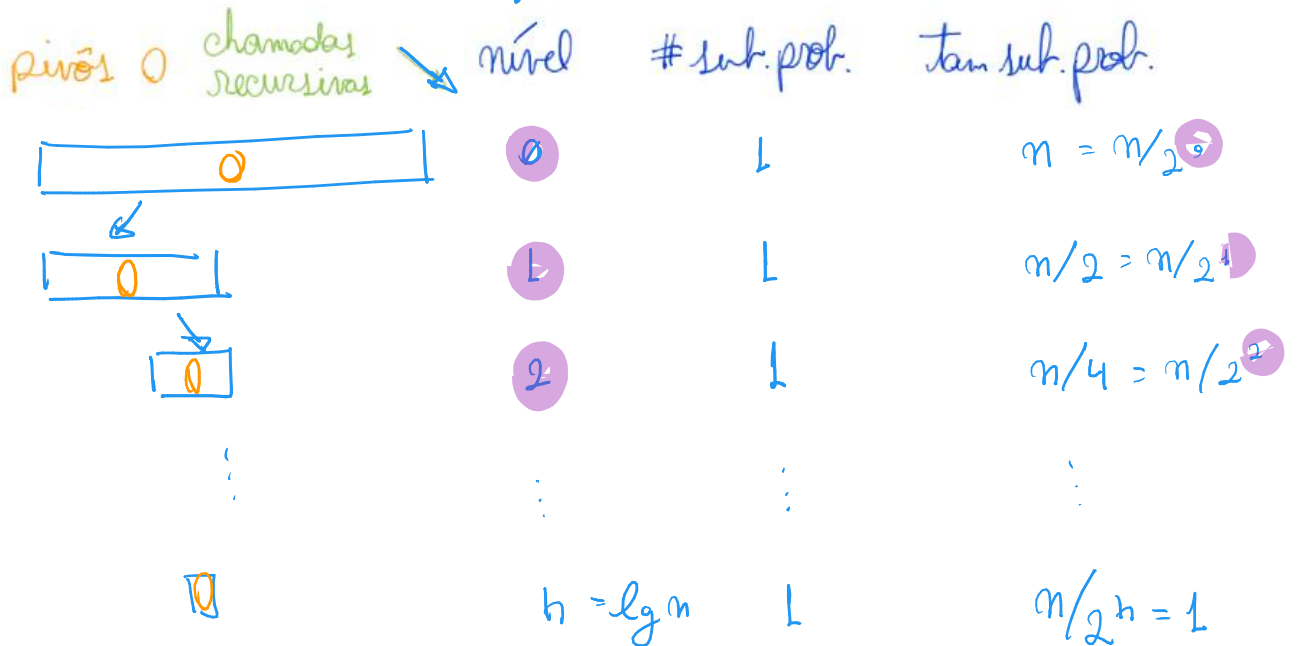 pivôs O chamadas recursivas nível # sub.prob. tam sub.prob.
0 1 n = n/2^0
1 1 n/2 = n/2^1
2 1 n/4 = n/2^2
h = lg n 1 n/2^h = 1